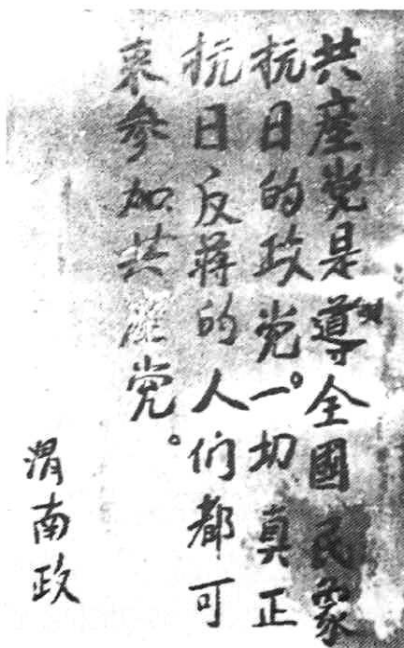 共產党是導全國民衆
抗日的政党。一切真正
抗日反蔣的人们都可
來參加共產党。
渭南政